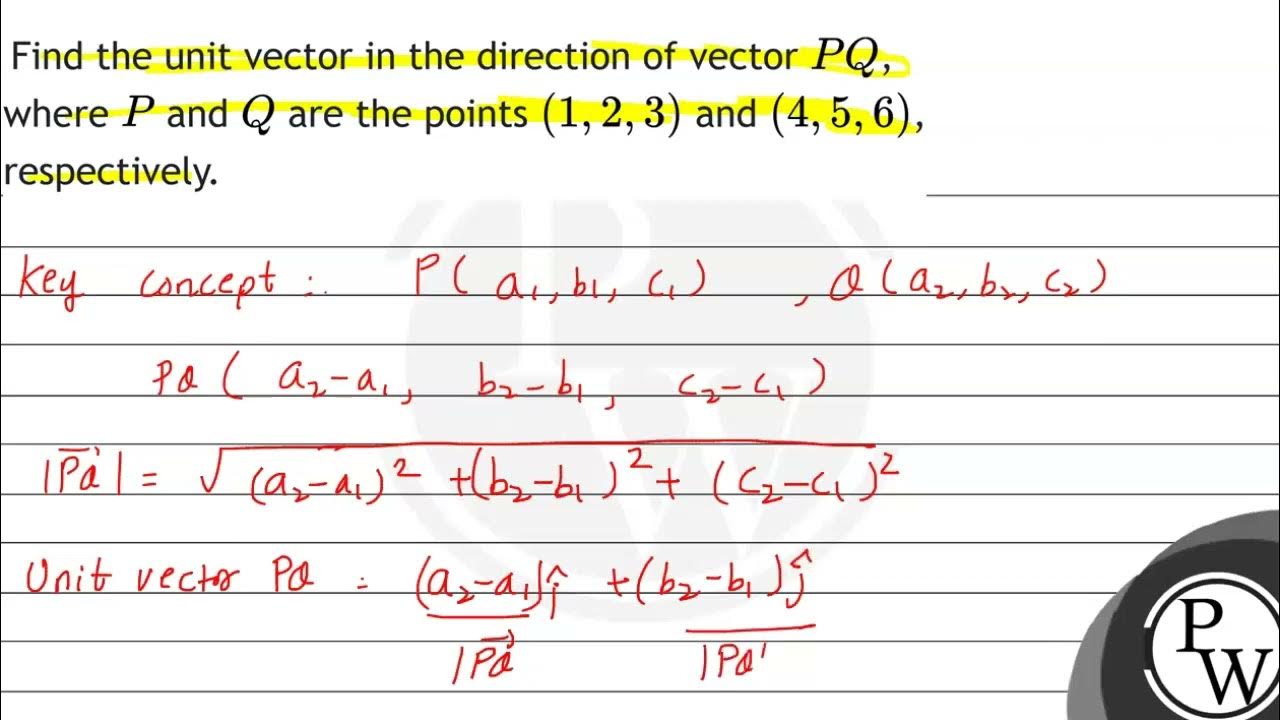 Find the unit vector in the direction of vector PQ,
where P and Q are the points (1, 2, 3) and (4, 5, 6),
respectively.
Key concept :. P( a₁, b₁, c₁) , Q (a₂, b₂, c₂)
PQ ( a₂-a₁, b₂-b₁, c₂-c₁ )
|PQ⃗| = √(a₂-a₁)² +(b₂-b₁)² + (c₂-c₁)²
Unit vector PQ = (a₂-a₁)î + (b₂-b₁)ĵ
|PQ⃗ |PQ'
P
W